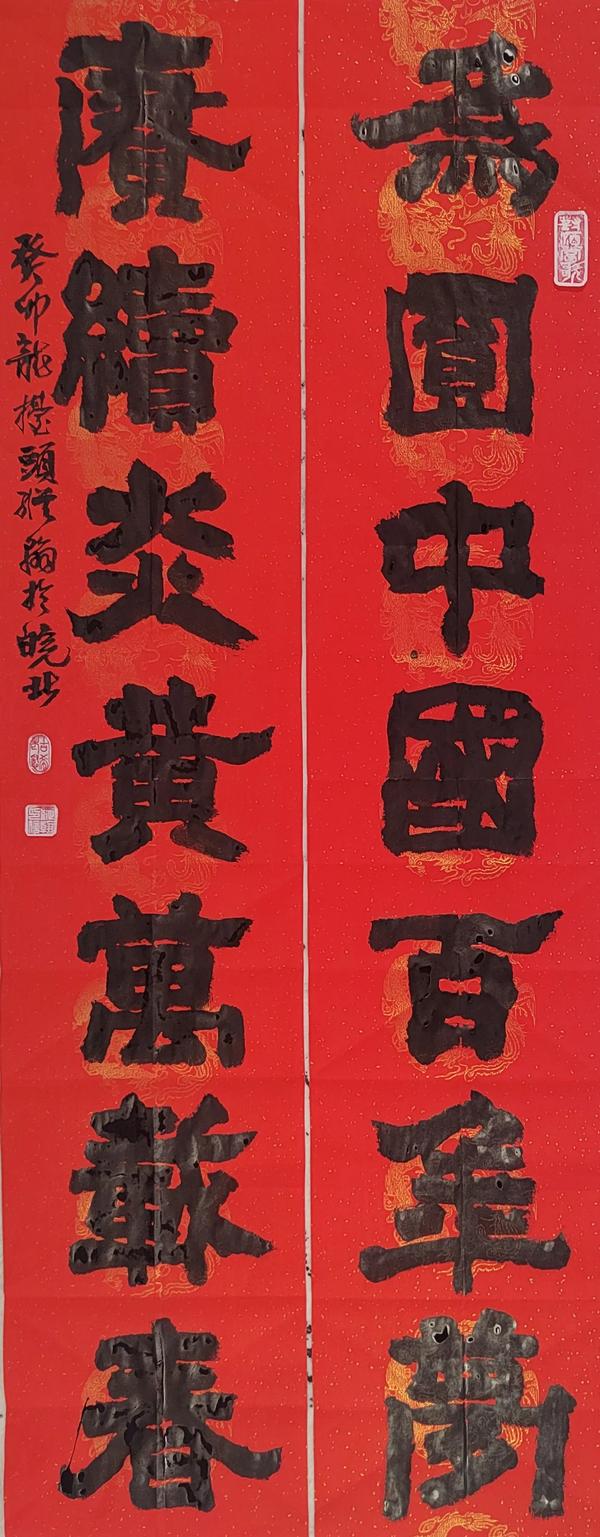 為圓中國百年夢
賡續炎黃萬載春
癸卯龍擡頭 翰於皖北